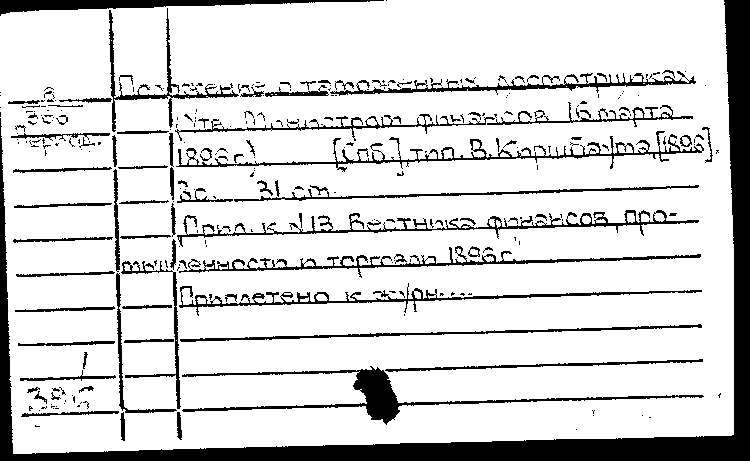 Положение о таможенных досмотрщиках
В
360
Период.
(Утв. Министром финансов 16 марта
1896 г.) [Спб.], тип. В. Киршбаума, [1896].
3 с. 31 ст.
(Прил. к №13 Вестника финансов, про-
мышленности и торговли 1896 г."
Приплетено к журн....